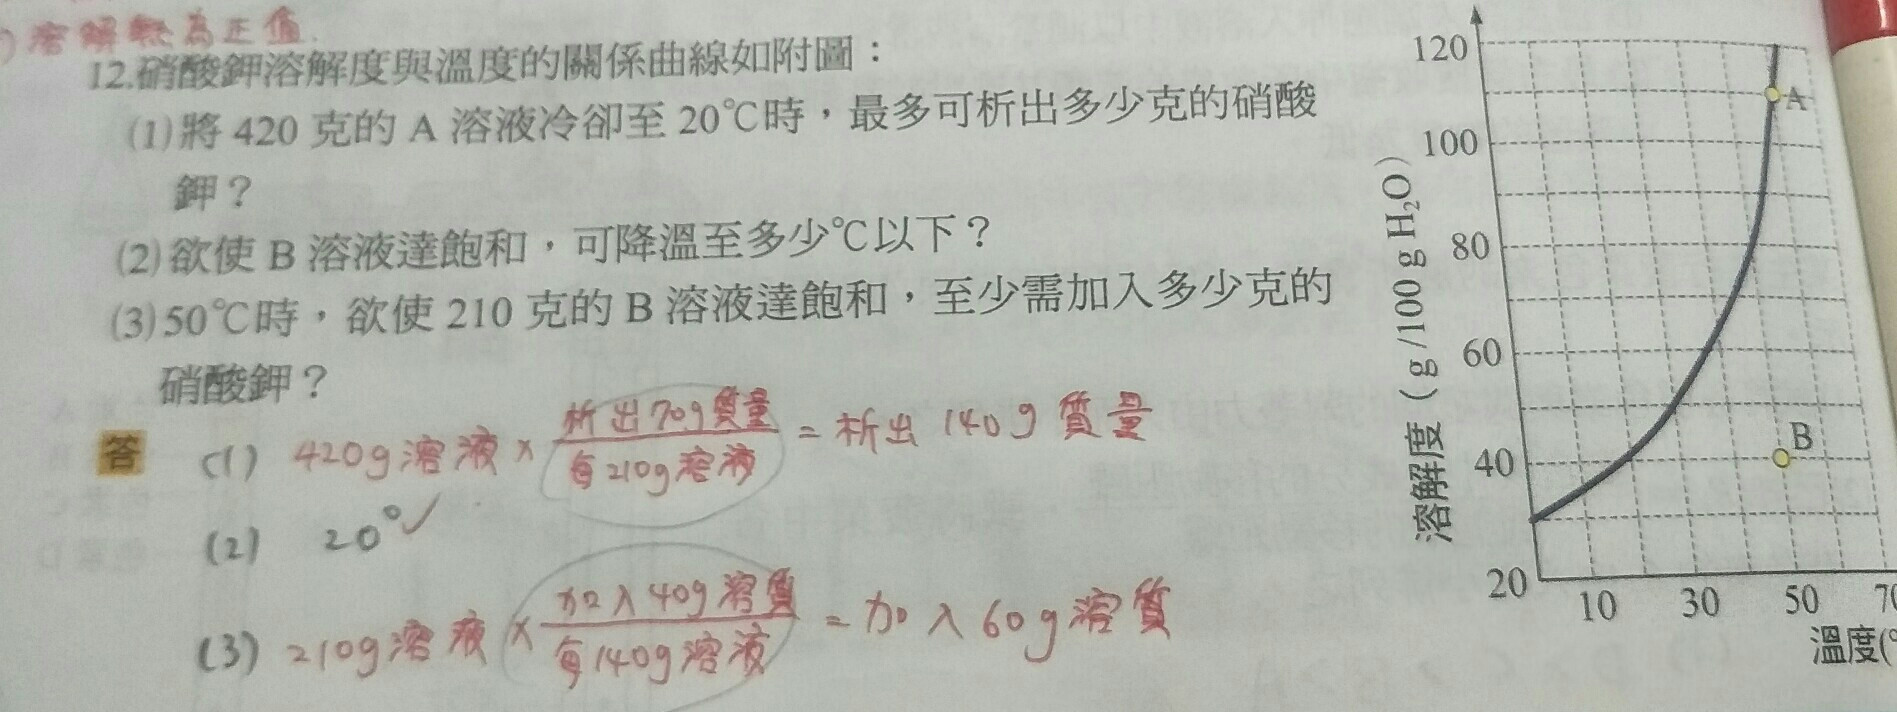 溶解熱為正值.
12.硝酸鉀溶解度與溫度的關係曲線如附圖：
(1)將 420 克的 A 溶液冷卻至 20℃時，最多可析出多少克的硝酸
鉀？
(2)欲使 B 溶液達飽和，可降溫至多少℃以下？
(3)50℃時，欲使 210 克的 B 溶液達飽和，至少需加入多少克的
硝酸鉀？
答 (1) 420g溶液 × 析出70g質量/每210g溶液 = 析出 140g 質量
(2) 20°✓
(3) 210g溶液 × 加入40g溶質/每140g溶液 = 加入60g溶質
溶解度（g /100 g H₂O）
120
100
80
60
40
20
A
B
10 30 50 70
溫度(°